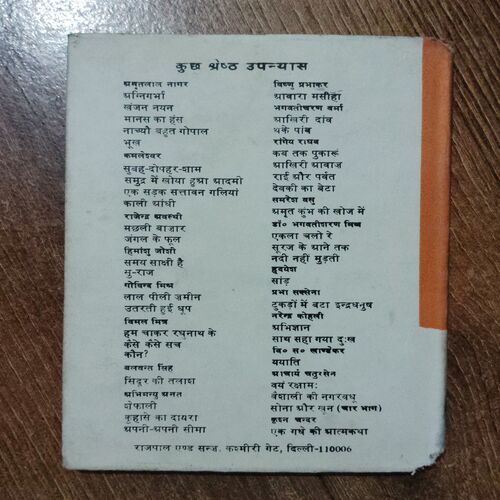 कुछ श्रेष्ठ उपन्यास
अमृतलाल नागर
अग्निगर्भा
खंजन नयन
मानस का हंस
नाच्यौ बहुत गोपाल
भूख
कमलेश्वर
सुबह-दोपहर-शाम
समुद्र में खोया हुआ आदमी
एक सड़क सत्तावन गलियां
काली आंधी
राजेन्द्र अवस्थी
मछली बाज़ार
जंगल के फूल
हिमांशु जोशी
समय साक्षी है
सु-राज
गोविन्द मिश्र
लाल पीली ज़मीन
उतरती हुई धूप
विमल मित्र
हम चाकर रघुनाथ के
कैसे कैसे सच
कौन?
बलवन्त सिंह
सिंदूर की तलाश
अभिमन्यु अनत
शेफाली
कुहासे का दायरा
अपनी-अपनी सीमा
विष्णु प्रभाकर
आवारा मसीहा
भगवतीचरण वर्मा
आखिरी दांव
थके पांव
रांगेय राघव
कब तक पुकारूं
आखिरी आवाज़
राई और पर्वत
देवकी का बेटा
समरेश बसु
अमृत कुंभ की खोज में
डॉ० भगवतीशरण मिश्र
एकला चलो रे
सूरज के आने तक
नदी नहीं मुड़ती
हृदयेश
सांड
प्रभा सक्सेना
टुकड़ों में बंटा इन्द्रधनुष
नरेन्द्र कोहली
अभिज्ञान
साथ सहा गया दुःख
वि० स० खाण्डेकर
ययाति
आचार्य चतुरसेन
वयं रक्षामः
वैशाली की नगरवधू
सोना और खून (चार भाग)
कृश्न चन्दर
एक गधे की आत्मकथा
राजपाल एण्ड सन्ज़, कश्मीरी गेट, दिल्ली-110006